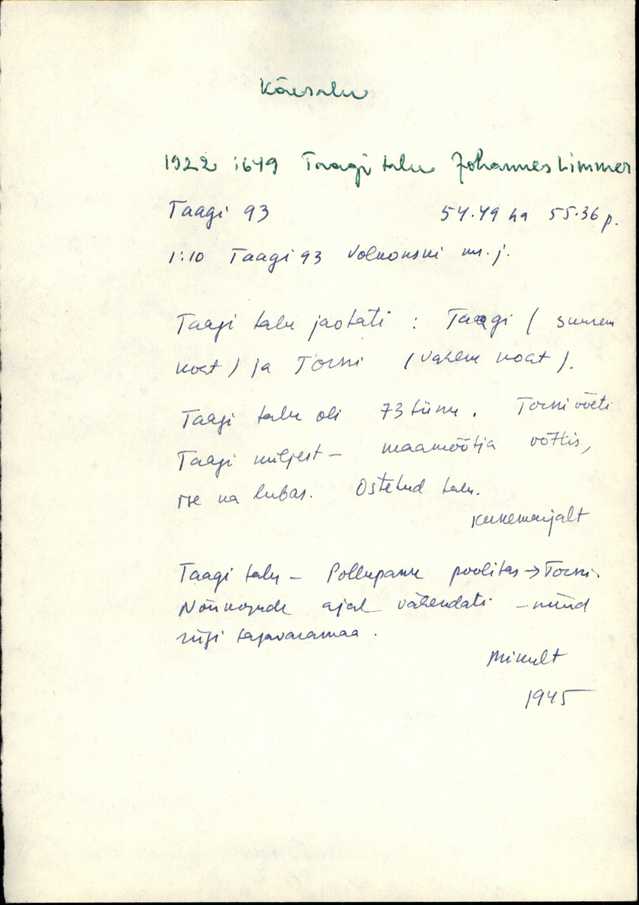 Käesalu
1922 1649 Taagi talu Johannes Limmer
Taagi 93 54.49 ha 55.36 p.
1:10 Taagi 93 Volkonski m. j.
Taagi talu jaotati : Taagi ( suurem
koat ) ja Torni ( vähem koat ).
Taagi talu oli 73 tiinu. Torni võeti
Taagi küljest – maamõõtja võttis,
ise ka lubas. Ostetud talu.
Taagi talu – Põllupank poolitas → Torni.
Nõukogude ajal vähendati – nüüd
riigi tagavaramaa.
Mikult
1945